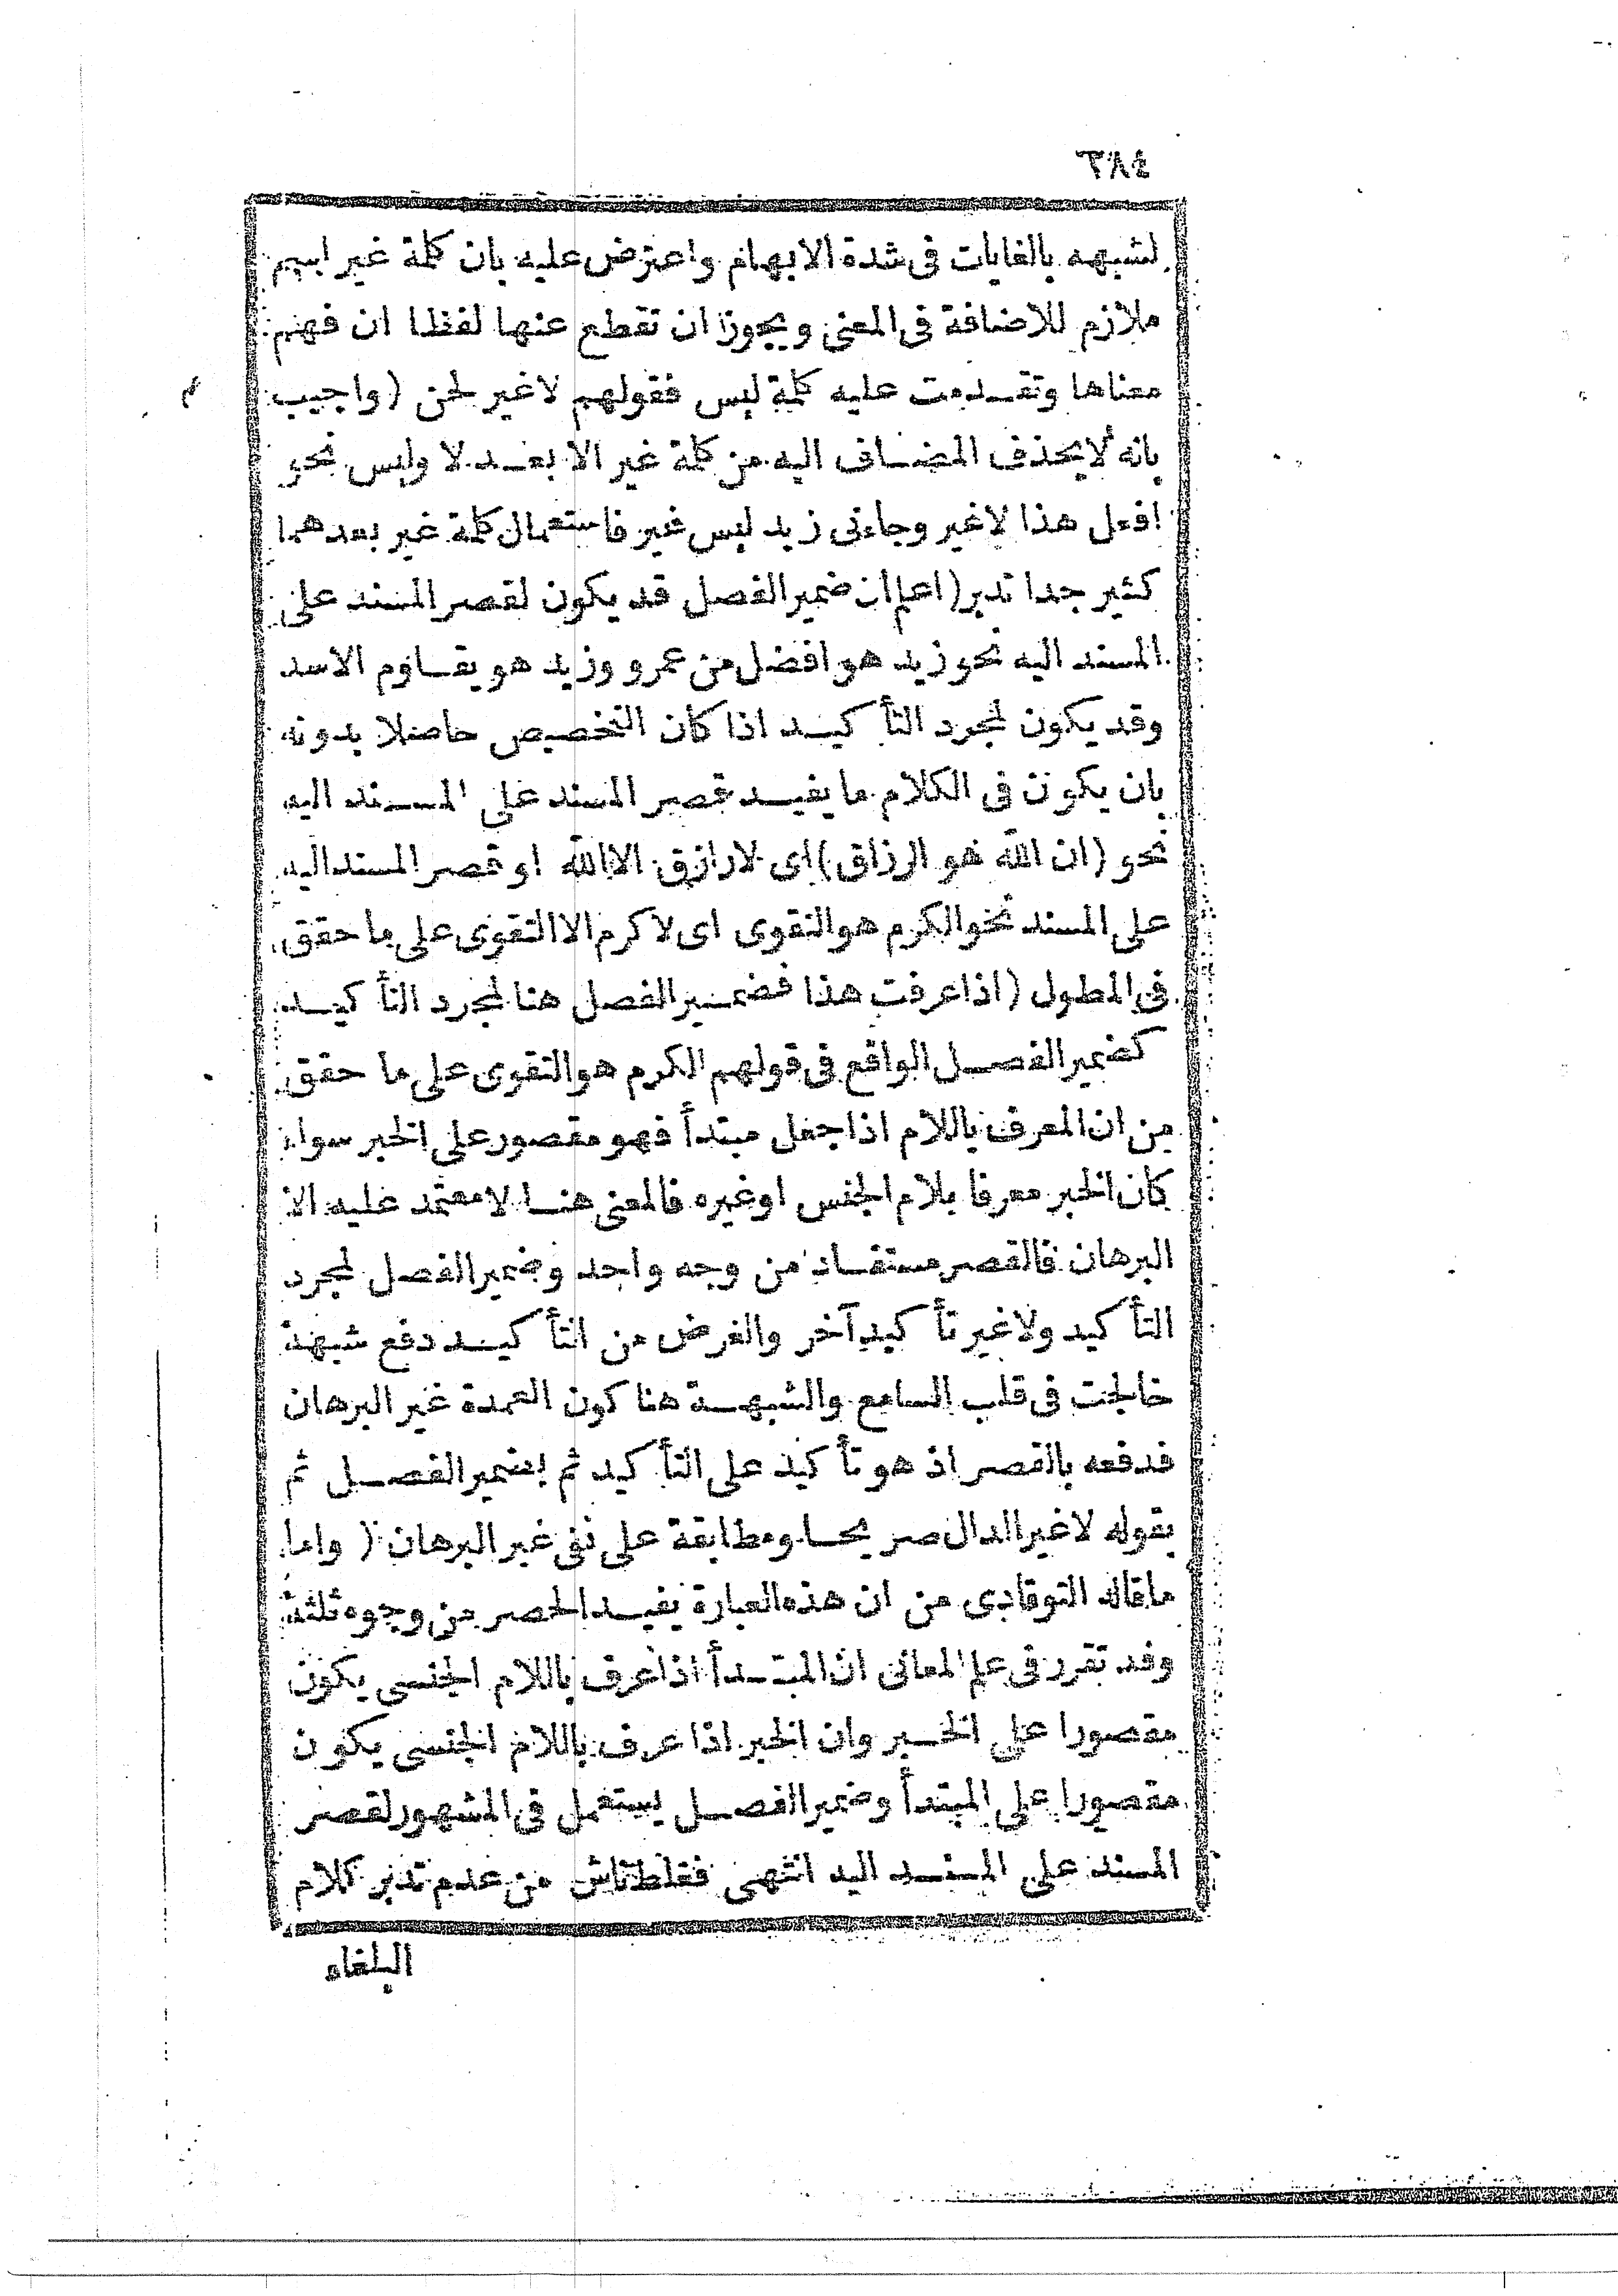 ٢٨٤
لشبهه بالغايات فى شدة الابهام واعترض عليه بان كلمة غير اسم
ملازم للاضافة فى المعنى ويجوز ان تقطع عنها لفظا ان فهم
معناها وتقدمت عليه كلمة ليس فقولهم لاغير لحن (واجيب
بانه لايحذف المضاف اليه من كلمة غير الا بعد لا وليس نحو
افعل هذا لاغير وجاءنى زيد ليس غير فاستعمال كلمة غير بعدهما
كثير جدا تدبر (اعلم ان ضمير الفصل قد يكون لقصر المسند على
المسند اليه نحو زيد هو افضل من عمرو وزيد هو يقاوم الاسد
وقد يكون لمجرد التأكيد اذا كان التخصيص حاصلا بدونه
بان يكون فى الكلام ما يفيد قصر المسند على المسند اليه
نحو (ان الله هو الرزاق) اى لارازق الاالله او قصر المسند اليه
على المسند نحو الكرم هو التقوى اى لا كرم الا التقوى على ما حقق
فى المطول (اذا عرفت هذا فضمير الفصل هنا لمجرد التأكيد
كضمير الفصل الواقع فى قولهم الكرم هو التقوى على ما حقق
من ان المعرف باللام اذا جعل مبتدأ فهو مقصور على الخبر سواء
كان الخبر معرفا بلام الجنس او غيره فالمعنى هنا لا معتمد عليه الا
البرهان فالقصر مستفاد من وجه واحد وضمير الفصل لمجرد
التأكيد ولاغير تأكيد آخر والغرض من التأكيد دفع شبهة
خالجت فى قلب السامع والشبهة هنا كون العمدة غير البرهان
فدفعه بالقصر اذ هو تأكيد على التأكيد ثم بضمير الفصل ثم
بقوله لاغير الدال صريحا ومطابقة على نفى غير البرهان (واما
ماقاله التوقادى من ان هذه العبارة يفيد الحصر من وجوه ثلثة
وقد تقرر فى علم المعانى ان المبتدأ اذا عرف باللام الجنسى يكون
مقصورا على الخبر وان الخبر اذا عرف باللام الجنسى يكون
مقصورا على المبتدأ وضمير الفصل يستعمل فى المشهور لقصر
المسند على المسند اليه انتهى فغلط ناش من عدم تدبر كلام
البلغاء